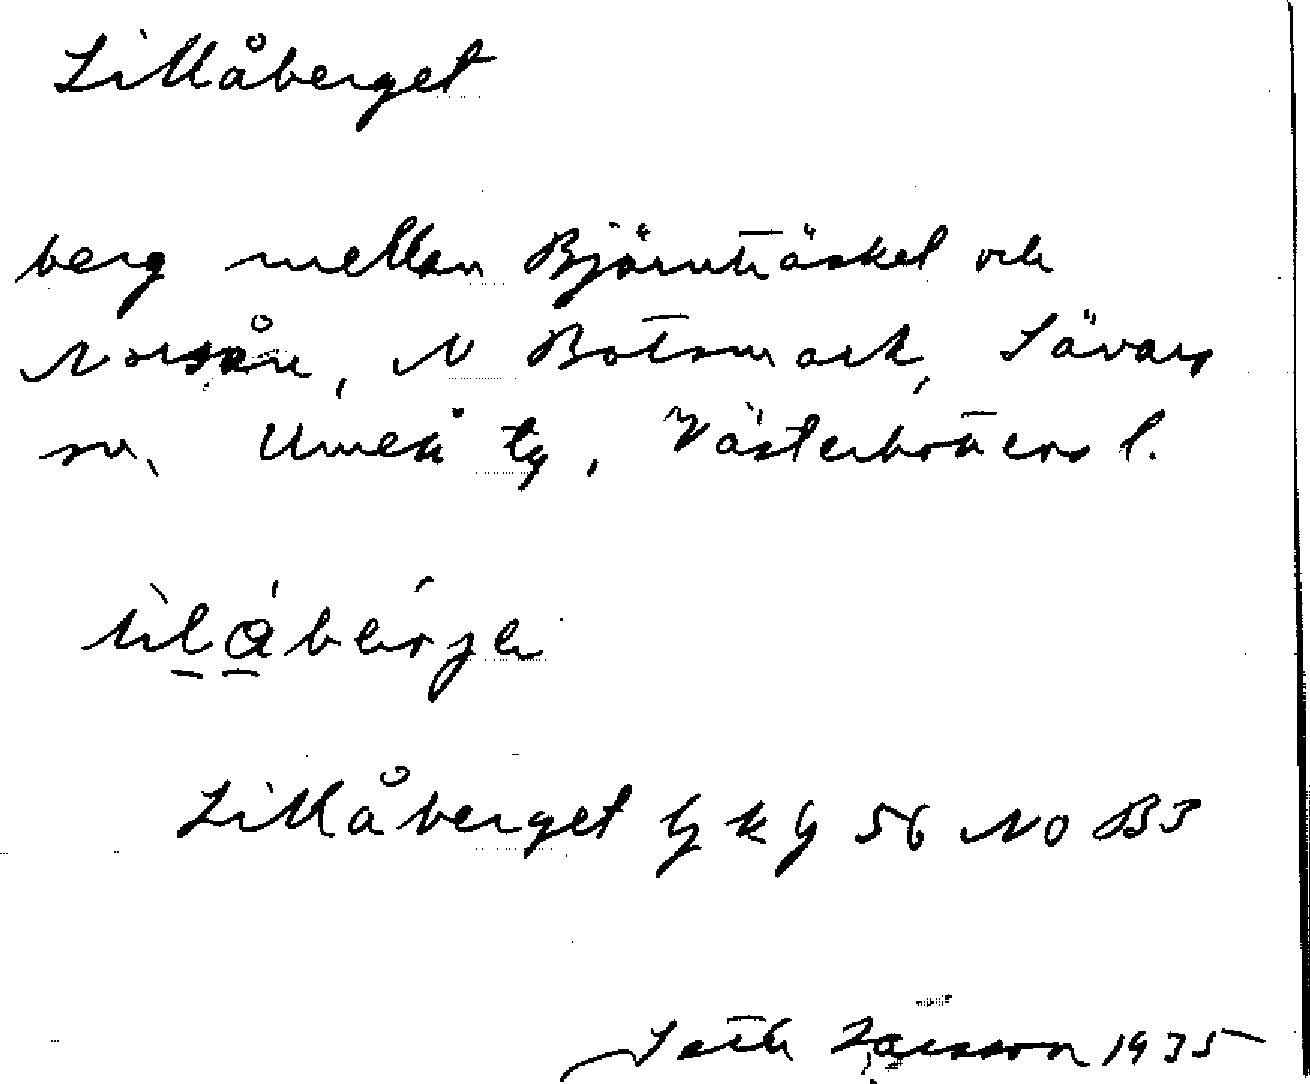 Lillåberget
berg mellan Björnträsket och
Norsån, N Botsmark, Sävars
sn, Umeå tg, Västerbottens l.
Lillåberget gkg 56 NO B3
Seth Larsson 1935